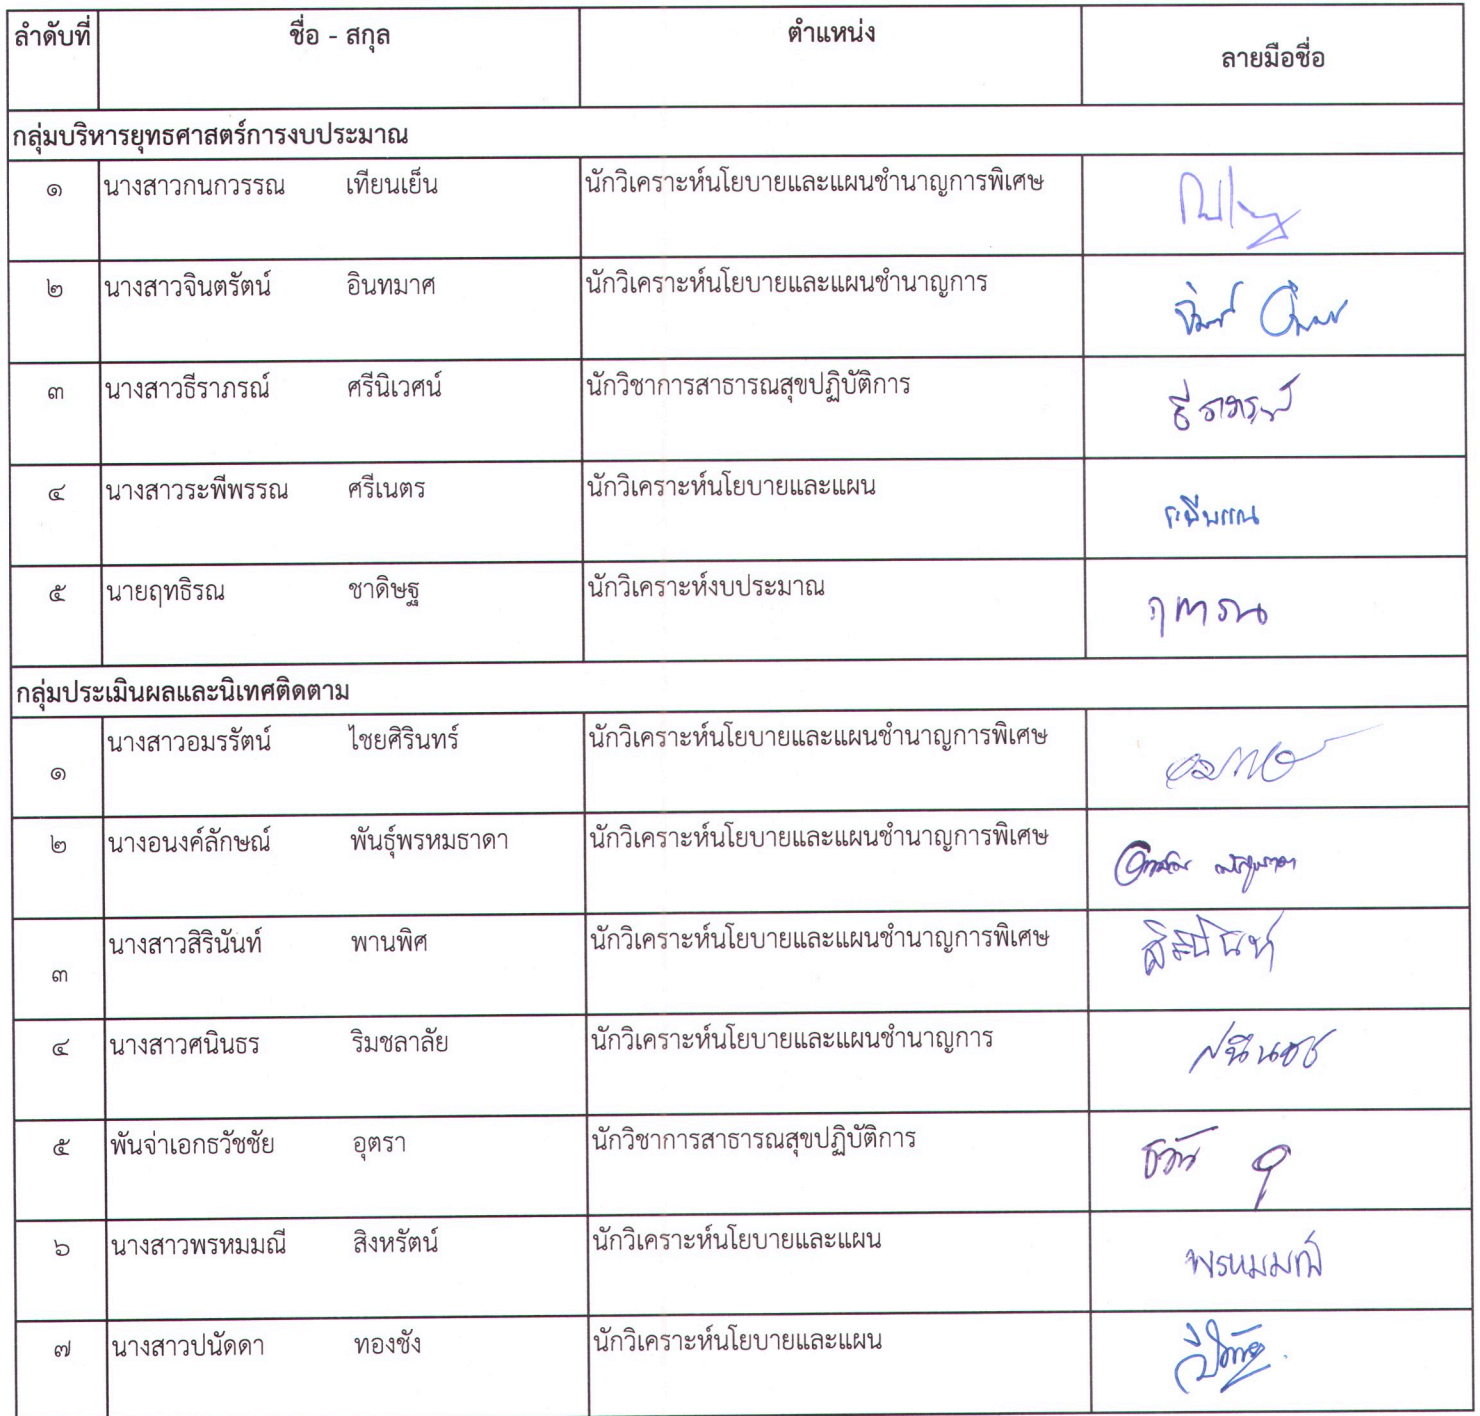 ลำดับที่ ชื่อ - สกุล ตำแหน่ง ลายมือชื่อ
กลุ่มบริหารยุทธศาสตร์การงบประมาณ
๑ นางสาวกนกวรรณ เทียนเย็น นักวิเคราะห์นโยบายและแผนชำนาญการพิเศษ
๒ นางสาวจินตรัตน์ อินทมาศ นักวิเคราะห์นโยบายและแผนชำนาญการ
๓ นางสาวธีราภรณ์ ศรีนิเวศน์ นักวิชาการสาธารณสุขปฏิบัติการ ธีราภรณ์
๔ นางสาวระพีพรรณ ศรีเนตร นักวิเคราะห์นโยบายและแผน ระพีพรรณ
๕ นายฤทธิรณ ชาดิษฐ นักวิเคราะห์งบประมาณ
กลุ่มประเมินผลและนิเทศติดตาม
๑ นางสาวอมรรัตน์ ไชยศิรินทร์ นักวิเคราะห์นโยบายและแผนชำนาญการพิเศษ
๒ นางอนงค์ลักษณ์ พันธุ์พรหมธาดา นักวิเคราะห์นโยบายและแผนชำนาญการพิเศษ
๓ นางสาวสิรินันท์ พานพิศ นักวิเคราะห์นโยบายและแผนชำนาญการพิเศษ สิรินันท์
๔ นางสาวศนินธร ริมชลาลัย นักวิเคราะห์นโยบายและแผนชำนาญการ ศนินธร
๕ พันจ่าเอกธวัชชัย อุตรา นักวิชาการสาธารณสุขปฏิบัติการ
๖ นางสาวพรหมมณี สิงหรัตน์ นักวิเคราะห์นโยบายและแผน พรหมมณี
๗ นางสาวปนัดดา ทองชัง นักวิเคราะห์นโยบายและแผน